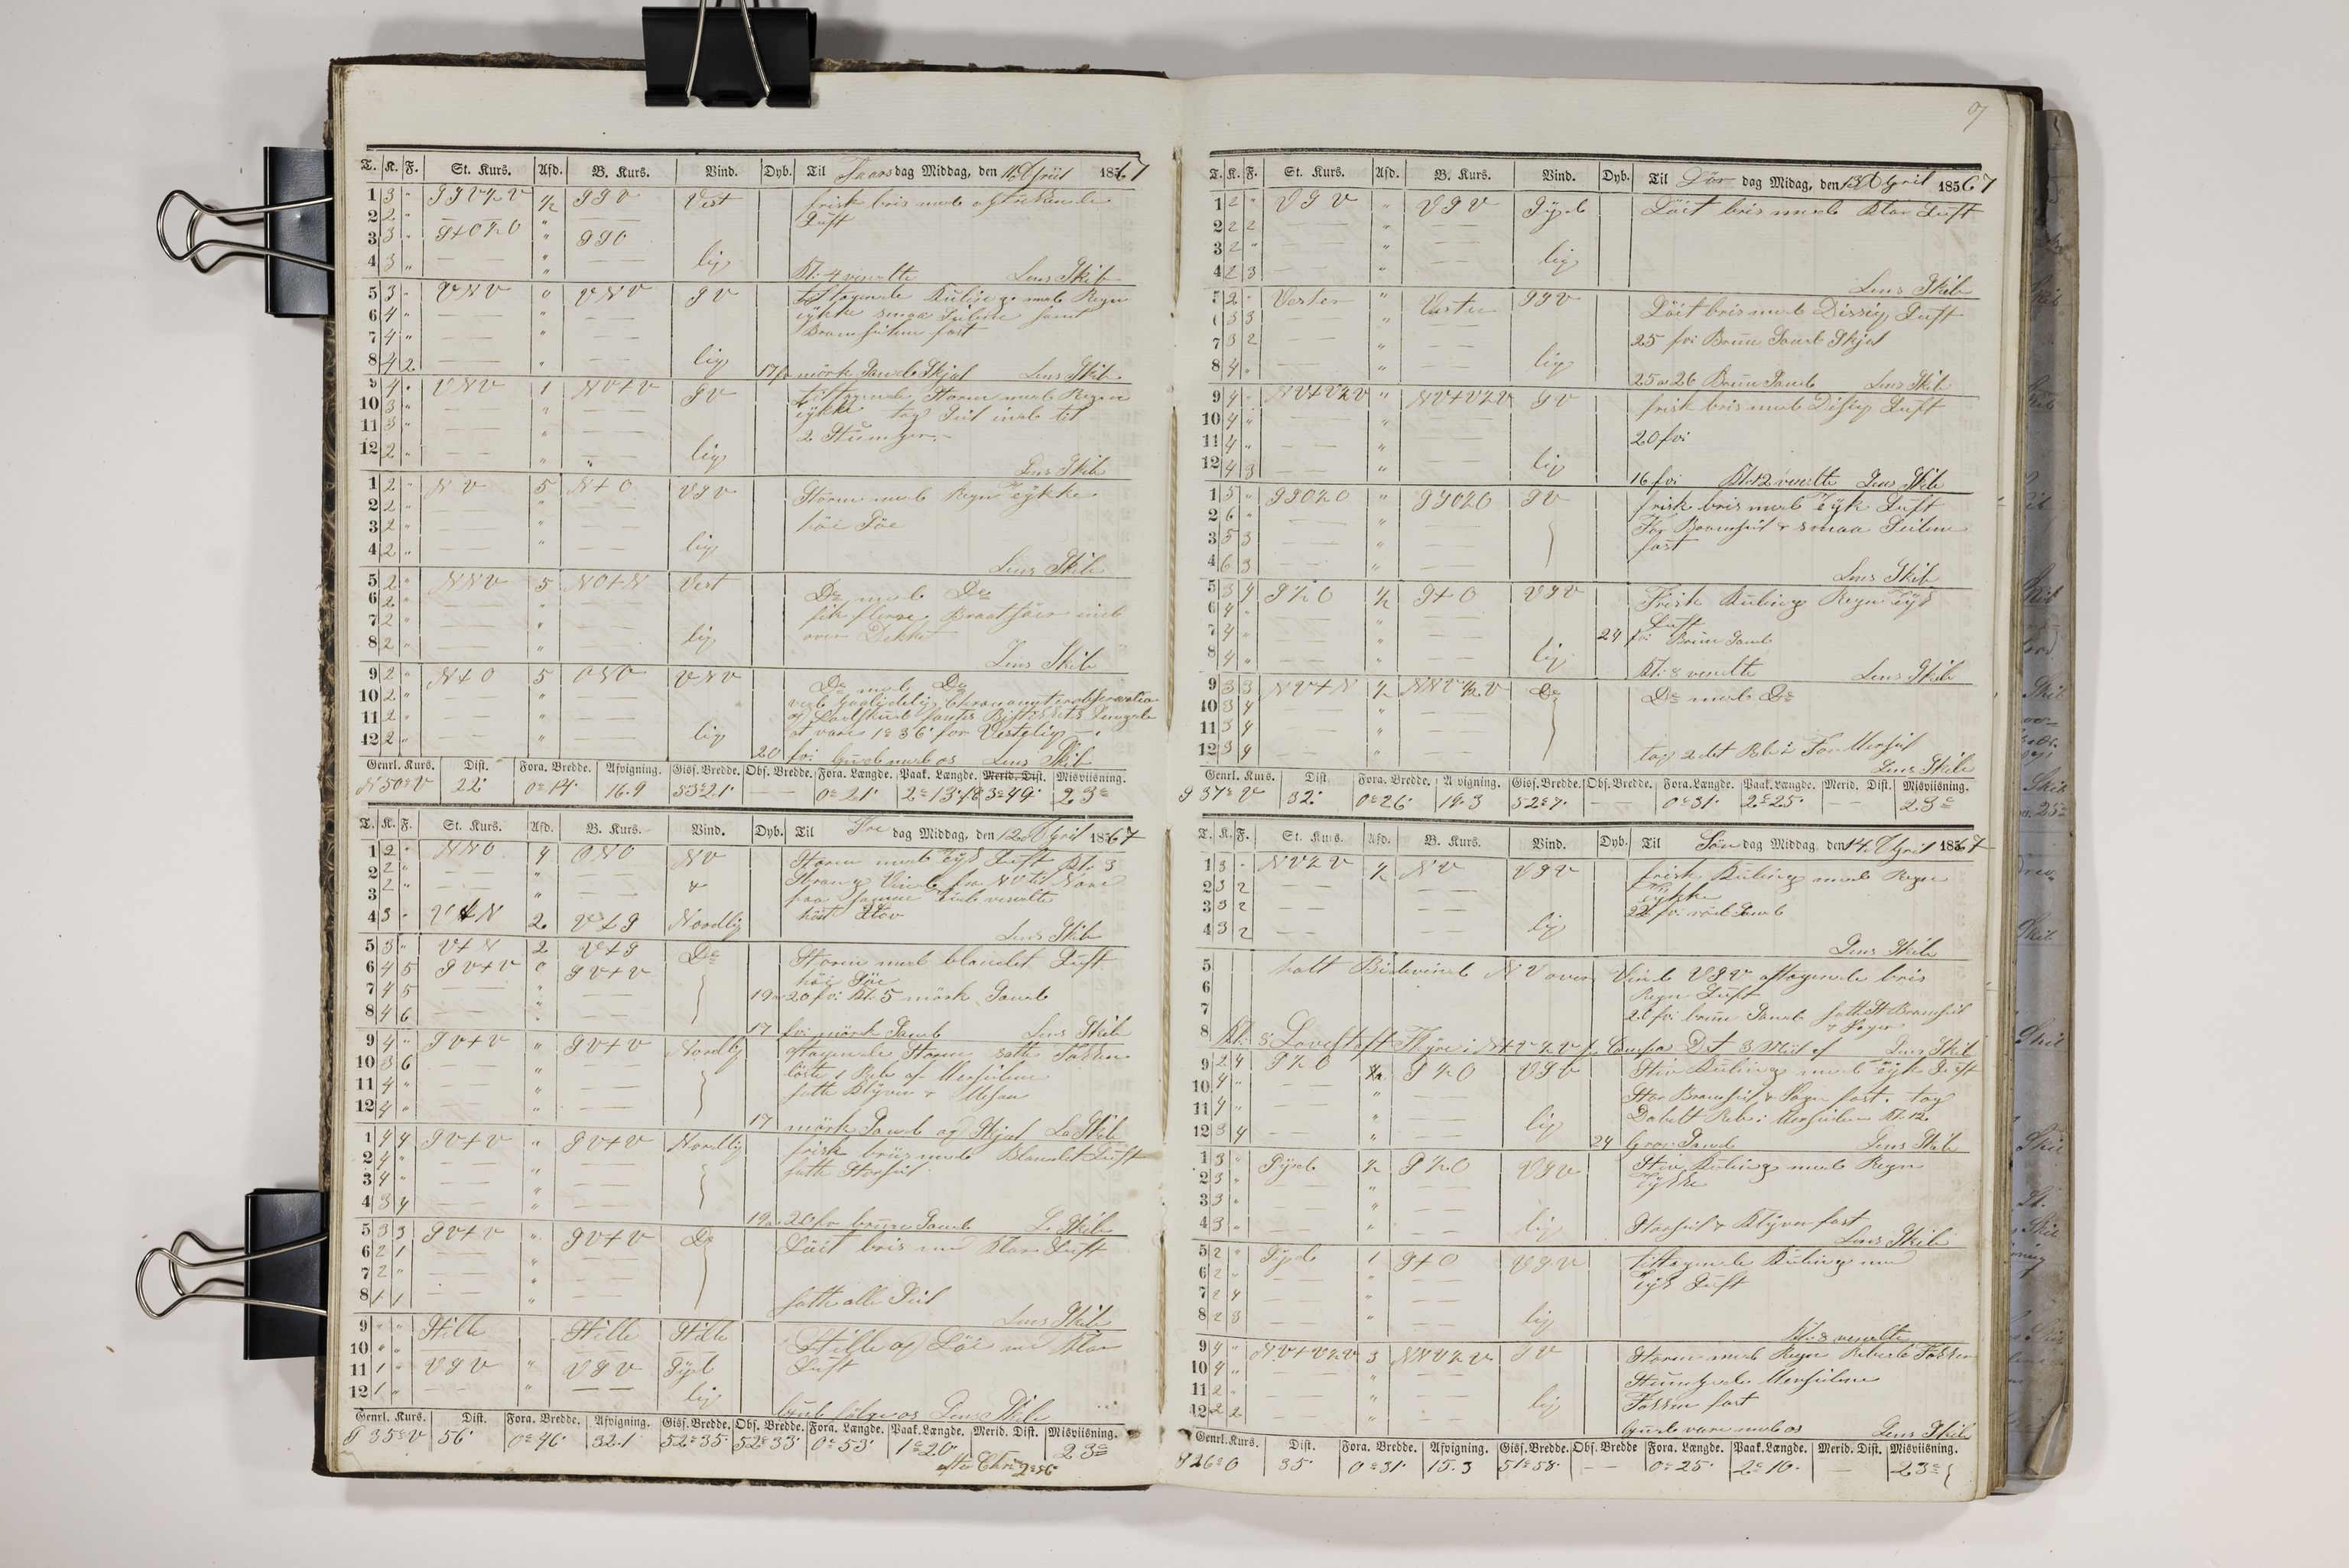 T. K. F. St. Kurs. Afd. B. Kurs. Vind. Dyb. Til Torsdag Middag, den 11 April 1867
1 3 " SSV½V ½ SSV Vest frisk bris med
2 2 " — — " — — Luft
3 3 " S+O½O " SSO
4 3 " — — " — — lig Kl: 4 vendte Lens Skib
5 3 " VNV " VNV SV tiltagende Kuling med Regn
6 4 " — — " — — tykke smaa Seilene samt
7 4 " — — " — — Bramseilene fast
8 4 2 — — " — — lig 17 fv mörk Sand Skjæl Lens Skib
9 4 " VNV 1 NV+V SV tiltagende Storm med Regn
10 3 " — — " — — tykke tog Seil ind til
11 3 " — — " — — 2 Stumper
12 2 " — — " — — lig Lens Skib
1 2 " NV 5 N+O VSV Storm med Regn Tykke
2 2 " — — " — —
3 2 " — — " — — höi Söe
4 2 " — — " — — lig Lens Skib
5 2 " NNV 5 NO+N Vest Do med Do
6 2 " — — " — — fik flere Braatsöer ind
7 2 " — — " — — over Dekket
8 2 " — — " — — lig Lens Skib
9 2 " N+O 5 ONO VNV Do med Do
10 2 " — — " — —
11 2 " — — " — —
12 2 " — — " — — lig at være 1° 36' for Vestelig
20 fv: Gud med os Lens Skib
Genrl. Kurs. Dist. Fora. Bredde. Afvigning. Gisf. Bredde. Obs. Bredde. Fora. Længde. Paak. Længde. Merid. Dist. Misviisning.
N 50° V 22' 0° 14' 16.9 53° 21' — — 0° 21' 2° 13' 3° 49' 23°
T. K. F. St. Kurs. Afd. B. Kurs. Vind. Dyb. Til Fredag Middag, den 12 April 1867
1 2 " NNO 4 ONO NV Storm med Tyk Luft Kl. 3
2 2 " — — " — — Sprang Vinden fra NV til Nord
3 2 " — — " — —
4 3 " V+N 2 V+S Nordlig Lens Skib
5 3 " V+N 2 V+S Do Storm med blandet Luft
6 4 5 SV+V 0 SV+V höi Söe
7 4 5 — — " — — 19 a 20 fv: Kl: 5 mörk Sand
8 4 6 — — " — — 17 fv: mörk Sand Lens Skib
9 4 " SV+V " SV+V Nordlig aftagende Storm satte Fokken
10 3 6 — — " — — löste 1 Reb af Mersseilene
11 4 " — — " — — satte Klyver & Mesan
12 4 " — — " — — 17 mörk Sand og Skjæl L. Skib
1 4 4 SV+V " SV+V Nordlig frisk briis med Blandet Luft
2 4 " — — " — — satte Storseil
3 4 " — — " — —
4 3 4 — — " — — 19 a 20 fv bruun Sand L. Skib
5 3 3 SV+V " SV+V Do Löit bris med Klar Luft
6 2 1 — — " — —
7 2 " — — " — —
8 1 1 — — " — — satte alle Seil Lens Skib
9 " " Stille Stille Stille Stille og Löi med Klar
10 " " Luft
11 1 " VSV " VSV Syd
12 1 " — — " — — lig Gud fölge os Lens Skib
Genrl. Kurs. Dist. Fora. Bredde. Afvigning. Gisf. Bredde. Obs. Bredde. Fora. Længde. Paak. Længde. Merid. Dist. Misviisning.
S 35° V 56' 0° 46' 32.1 52° 35' 52° 33' 0° 53' 1° 20' 23°
efter Chr. 2° 56'
T. K. F. St. Kurs. Afd. B. Kurs. Vind. Dyb. Til Lör dag Midag, den 13 April 1867
1 2 " VSV " VSV Syd Löit bris med Klar Luft
2 2 2 — — " — —
3 2 " — — " — —
4 2 3 — — " — — lig Lens Skib
5 2 " Vester " Vester SSV Löit bris med Dissig Luft
6 3 3 — — " — —
7 3 2 — — " — — 25 fv: Bruun Sand Skjæl
8 4 " — — " — — lig 25 a 26 Bruun Sand Lens Skib
9 4 " NV+V½V " NV+V½V SV frisk bris med Disig Luft
10 4 " — — " — —
11 4 " — — " — — 20 fv:
12 4 3 — — " — — lig 16 fv: Kl: 12 vendte Lens Skib
1 5 " SSO½O " SSO½O SV frisk bris med Tyk Luft
2 6 " — — " — — Bramseil & smaa Seilene
3 5 3 — — " — — fast
4 6 3 — — " — — Lens Skib
5 3 4 S½O ½ S+O VSV Frisk Kuling Regn Tyk
6 4 " — — " — — Luft
7 4 " — — " — — 24 fv: Bruun Sand
8 4 " — — " — — lig Kl: 8 vendte Lens Skib
9 3 3 NV+N ½ NNV½V Do Do med Do
10 3 4 — — " — —
11 3 4 — — " — —
12 3 4 — — " — — tog 2det Reb i Mersseil
Lens Skib
Genrl. Kurs. Dist. Fora. Bredde. Afvigning. Gisf. Bredde. Obs. Bredde. Fora. Længde. Paak. Længde. Merid. Dist. Misviisning.
S 37° V 32' 0° 26' 19.3 52° 7' — — 0° 31' 2° 25' — — 23°
T. K. F. St. Kurs. Afd. B. Kurs. Vind. Dyb. Til Sön dag Middag, den 14 April 1867
1 3 " NV½V ½ NV VSV frisk Kuling med Regn
2 3 2 — — " — — Tykke
3 3 2 — — " — — 22 fv: röd Sand
4 3 2 — — " — — lig Lens Skib
5 holt Bidevind NV over Vind VSV aftagende bris
6 Regn Luft
7 26 fv: bruun Sand satte St Bramseil
8 Kl: 8 Lovestoft Fyre i Compas Dst 3 Miil af Lens Skib
9 2 4 S½O ½ S½O VSV Stiv Kuling med Tyk Luft
10 4 " — — " — — Stor Bramseil fast. tog
11 4 " — — " — — Dobelt Reb i Mersseilene Kl. 12
12 3 4 — — " — — lig 24 Grov Sand Lens Skib
1 3 " Syd ½ S½O VSV Stiv Kuling med Regn
2 3 " — — " — — Tykke
3 3 " — — " — —
4 3 " — — " — — lig Storseil & Klyver fast
Lens Skib
5 2 " Syd 1 S+O VSV tiltagende Kuling med
6 2 " — — " — — Tyk Luft
7 2 4 — — " — —
8 2 3 — — " — — lig Kl: 8 vendte
9 4 " NV+V½V 3 NNV½V SV Storm med Regn Rebede Fokken
10 4 " — — " — — Mersseilene
11 2 " — — " — — lig Fokken fast
12 2 2 — — " — — Gud være med os Lens Skib
Genrl. Kurs. Dist. Fora. Bredde. Afvigning. Gisf. Bredde. Obs. Bredde Fora. Længde. Paak. Længde. Merid. Dist. Misviisning.
S 26° O 35' 0° 31' 15.3 51° 58' — — 0° 25' 2° 10' — 23°